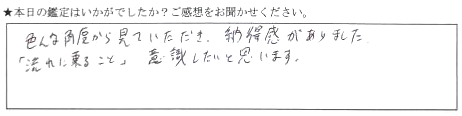 ★本日の鑑定はいかがでしたか？ご感想をお聞かせください。
色んな角度から見ていただき、納得感がありました
「流れに乗ること」 意識したいと思います。